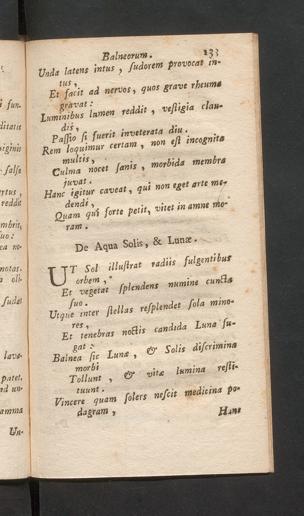 Balneorum. 133
Unda latens intus, sudorem provocat in-
tus,
Et facit ad nervos, quos grave rheuma
gravat:
Luminibus lumen reddit, vestigia clau-
dis,
Passio si fuerit inveterata diu.
Rem loquimur certam, non est incognita
multis,
Culma nocet sanis, morbida membra
juvat.
Hanc igitur caveat, qui non eget arte me-
dendi,
Quam qui forte petit, vitet in amne mo-
ram.
De Aqua Solis, & Lunæ.
UT Sol illustrat radiis fulgentibus
orbem,
Et vegetat splendens numine cuncta
suo.
Utque inter stellas resplendet sola mino-
res,
Et tenebras noctis candida Luna fu-
gat:
Balnea sic Lunæ, & Solis discrimina
morbi
Tollunt, & vitæ lumina resti-
tuunt.
Vincere quam solers nescit medicina po-
dagram,
Hanc
i fun-
ditatis
iginis
salsa
reddit
mbris,
notas.
sudet
lava-
patet.
ad un-
amma
Un-